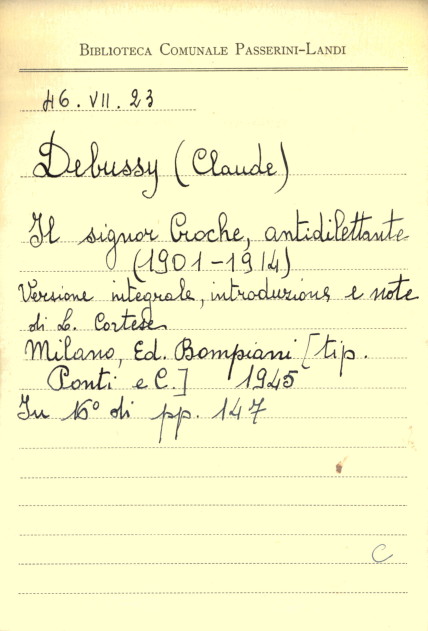 BIBLIOTECA COMUNALE PASSERINI-LANDI
46. VII. 23
Debussy (Claude)
Il signor Croche, antidilettante
(1901-1914)
Versione integrale, introduzione e note
di L. Cortese
Milano, Ed. Bompiani [tip.
Ponti e C.] 1945
In 16° di pp. 147
C